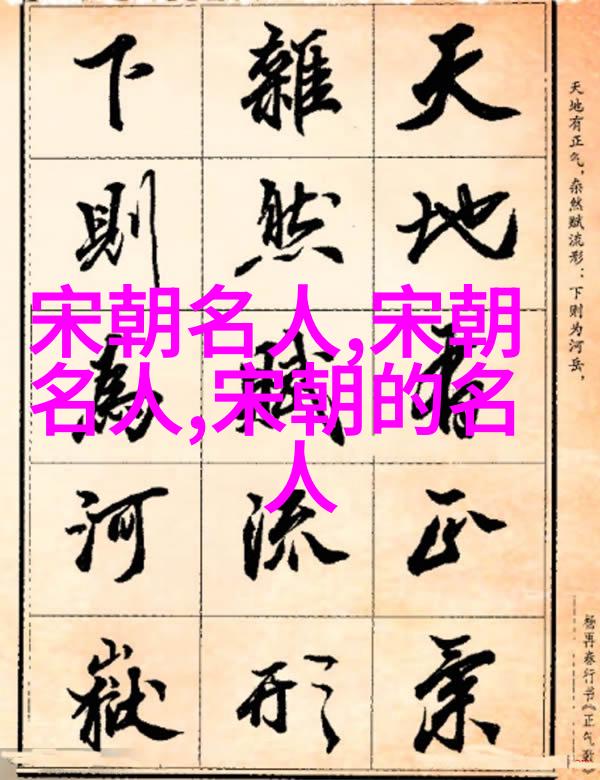 天地有正气，杂然赋流形：下则为河岳，
杨再春行书《正气歌》
天地有正氣
雜然賦流形
下則為河嶽
宋朝名人,宋朝
名人,宋朝的名
人